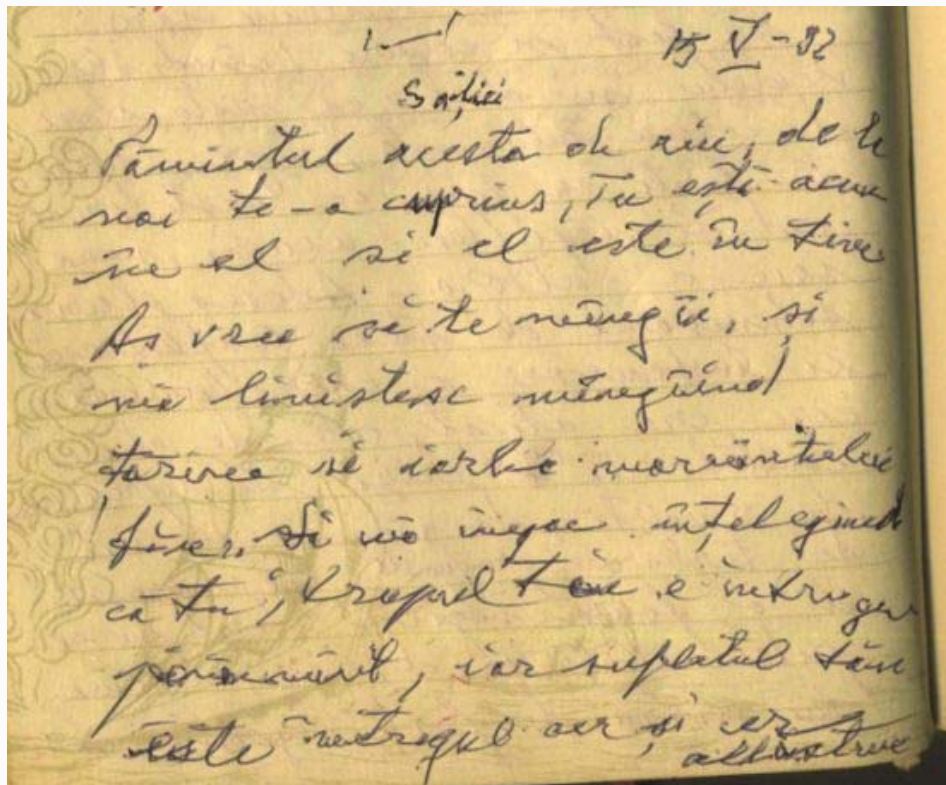 15 V - 92
Soției
Pămîntul acesta de aici, de la
noi te-a cuprins, Tu ești acum
în el si el este în tine
As vrea să te mîngîi, si
mă liniștesc mîngîind
țărîna si iarba mormîntului
tău. Si mă împac înțelegînd
că tu, trupul tău e întregul
pămînt, iar sufletul tău
este întregul aer și cer
albastru